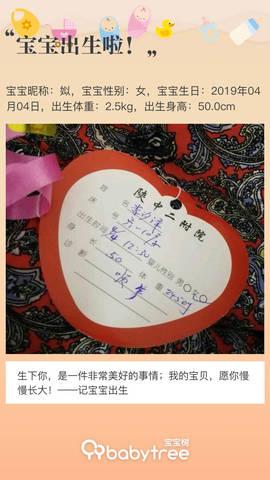 “宝宝出生啦！”
宝宝昵称：姒，宝宝性别：女，宝宝生日：2019年04
月04日，出生体重：2.5kg，出生身高：50.0cm
陕中二附院
姓名
床号
出生时间 4/4 12:50 婴儿性别 男○女○
身长 50 体重 2500g
诊断 顺产
生下你，是一件非常美好的事情；我的宝贝，愿你慢
慢长大！——记宝宝出生
宝宝树
babytree